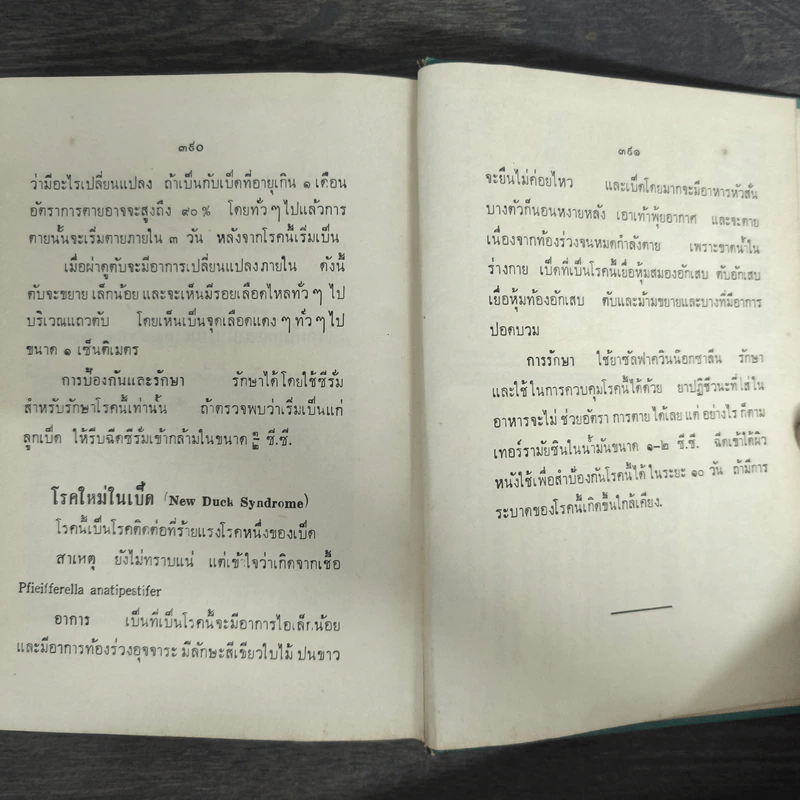 ๓๙๐
ว่ามีอะไรเปลี่ยนแปลง ถ้าเป็นกับเป็ดที่อายุเกิน ๑ เดือน
อัตราการตายอาจจะสูงถึง ๙๐% โดยทั่ว ๆ ไปแล้วการ
ตายนั้นจะเริ่มตายภายใน ๓ วัน หลังจากโรคนี้เริ่มเป็น
เมื่อผ่าดูตับจะมีอาการเปลี่ยนแปลงภายใน ดังนี้
ตับจะขยาย เล็กน้อย และจะเห็นมีรอยเลือดไหลทั่ว ๆ ไป
บริเวณแถวตับ โดยเห็นเป็นจุดเลือดแดง ๆ ทั่ว ๆ ไป
ขนาด ๑ เซ็นติเมตร
การป้องกันและรักษา รักษาได้โดยใช้ซีรั่ม
สำหรับรักษาโรคนี้เท่านั้น ถ้าตรวจพบว่าเริ่มเป็นแก่
ลูกเป็ด ให้รีบฉีดซีรั่มเข้ากล้ามในขนาด ซี.ซี.
โรคใหม่ในเป็ด (New Duck Syndrome)
โรคนี้เป็นโรคติดต่อที่ร้ายแรงโรคหนึ่งของเป็ด
สาเหตุ ยังไม่ทราบแน่ แต่เข้าใจว่าเกิดจากเชื้อ
Pfieifferella anatipestifer
อาการ เป็นที่เป็นโรคนี้จะมีอาการไอเล็กน้อย
และมีอาการท้องร่วงอุจจาระ มีลักษะสีเขียวใบไม้ ปนขาว
๓๙๑
จะยืนไม่ค่อยไหว และเป็ดโดยมากจะมีอาหารหัวสั่น
บางตัวก็นอนหงายหลัง เอาเท้าพุ้ยอากาศ และจะตาย
เนื่องจากท้องร่วงจนหมดกำลังตาย เพราะขาดน้ำใน
ร่างกาย เป็ดที่เป็นโรคนี้เยื่อหุ้มสมองอักเสบ ตับอักเสบ
เยื่อหุ้มท้องอักเสบ ตับและม้ามขยายและบางที่มีอาการ
ปอดบวม
การรักษา ใช้ยาซัลฟาควินน๊อกซาลีน รักษา
และใช้ ในการควบคุมโรคนี้ได้ด้วย ยาปฏิชีวนะที่ใส่ใน
อาหารจะไม่ ช่วยอัตรา การตาย ได้เลย แต่ อย่างไร ก็ตาม
เทอร์รามัยซินในน้ำมันขนาด ๑–๒ ซี.ซี. ฉีดเข้าใต้ผิว
หนังใช้เพื่อสำป้องกันโรคนี้ได้ ในระยะ ๑๐ วัน ถ้ามีการ
ระบาดของโรคนี้เกิดขึ้นใกล้เคียง.